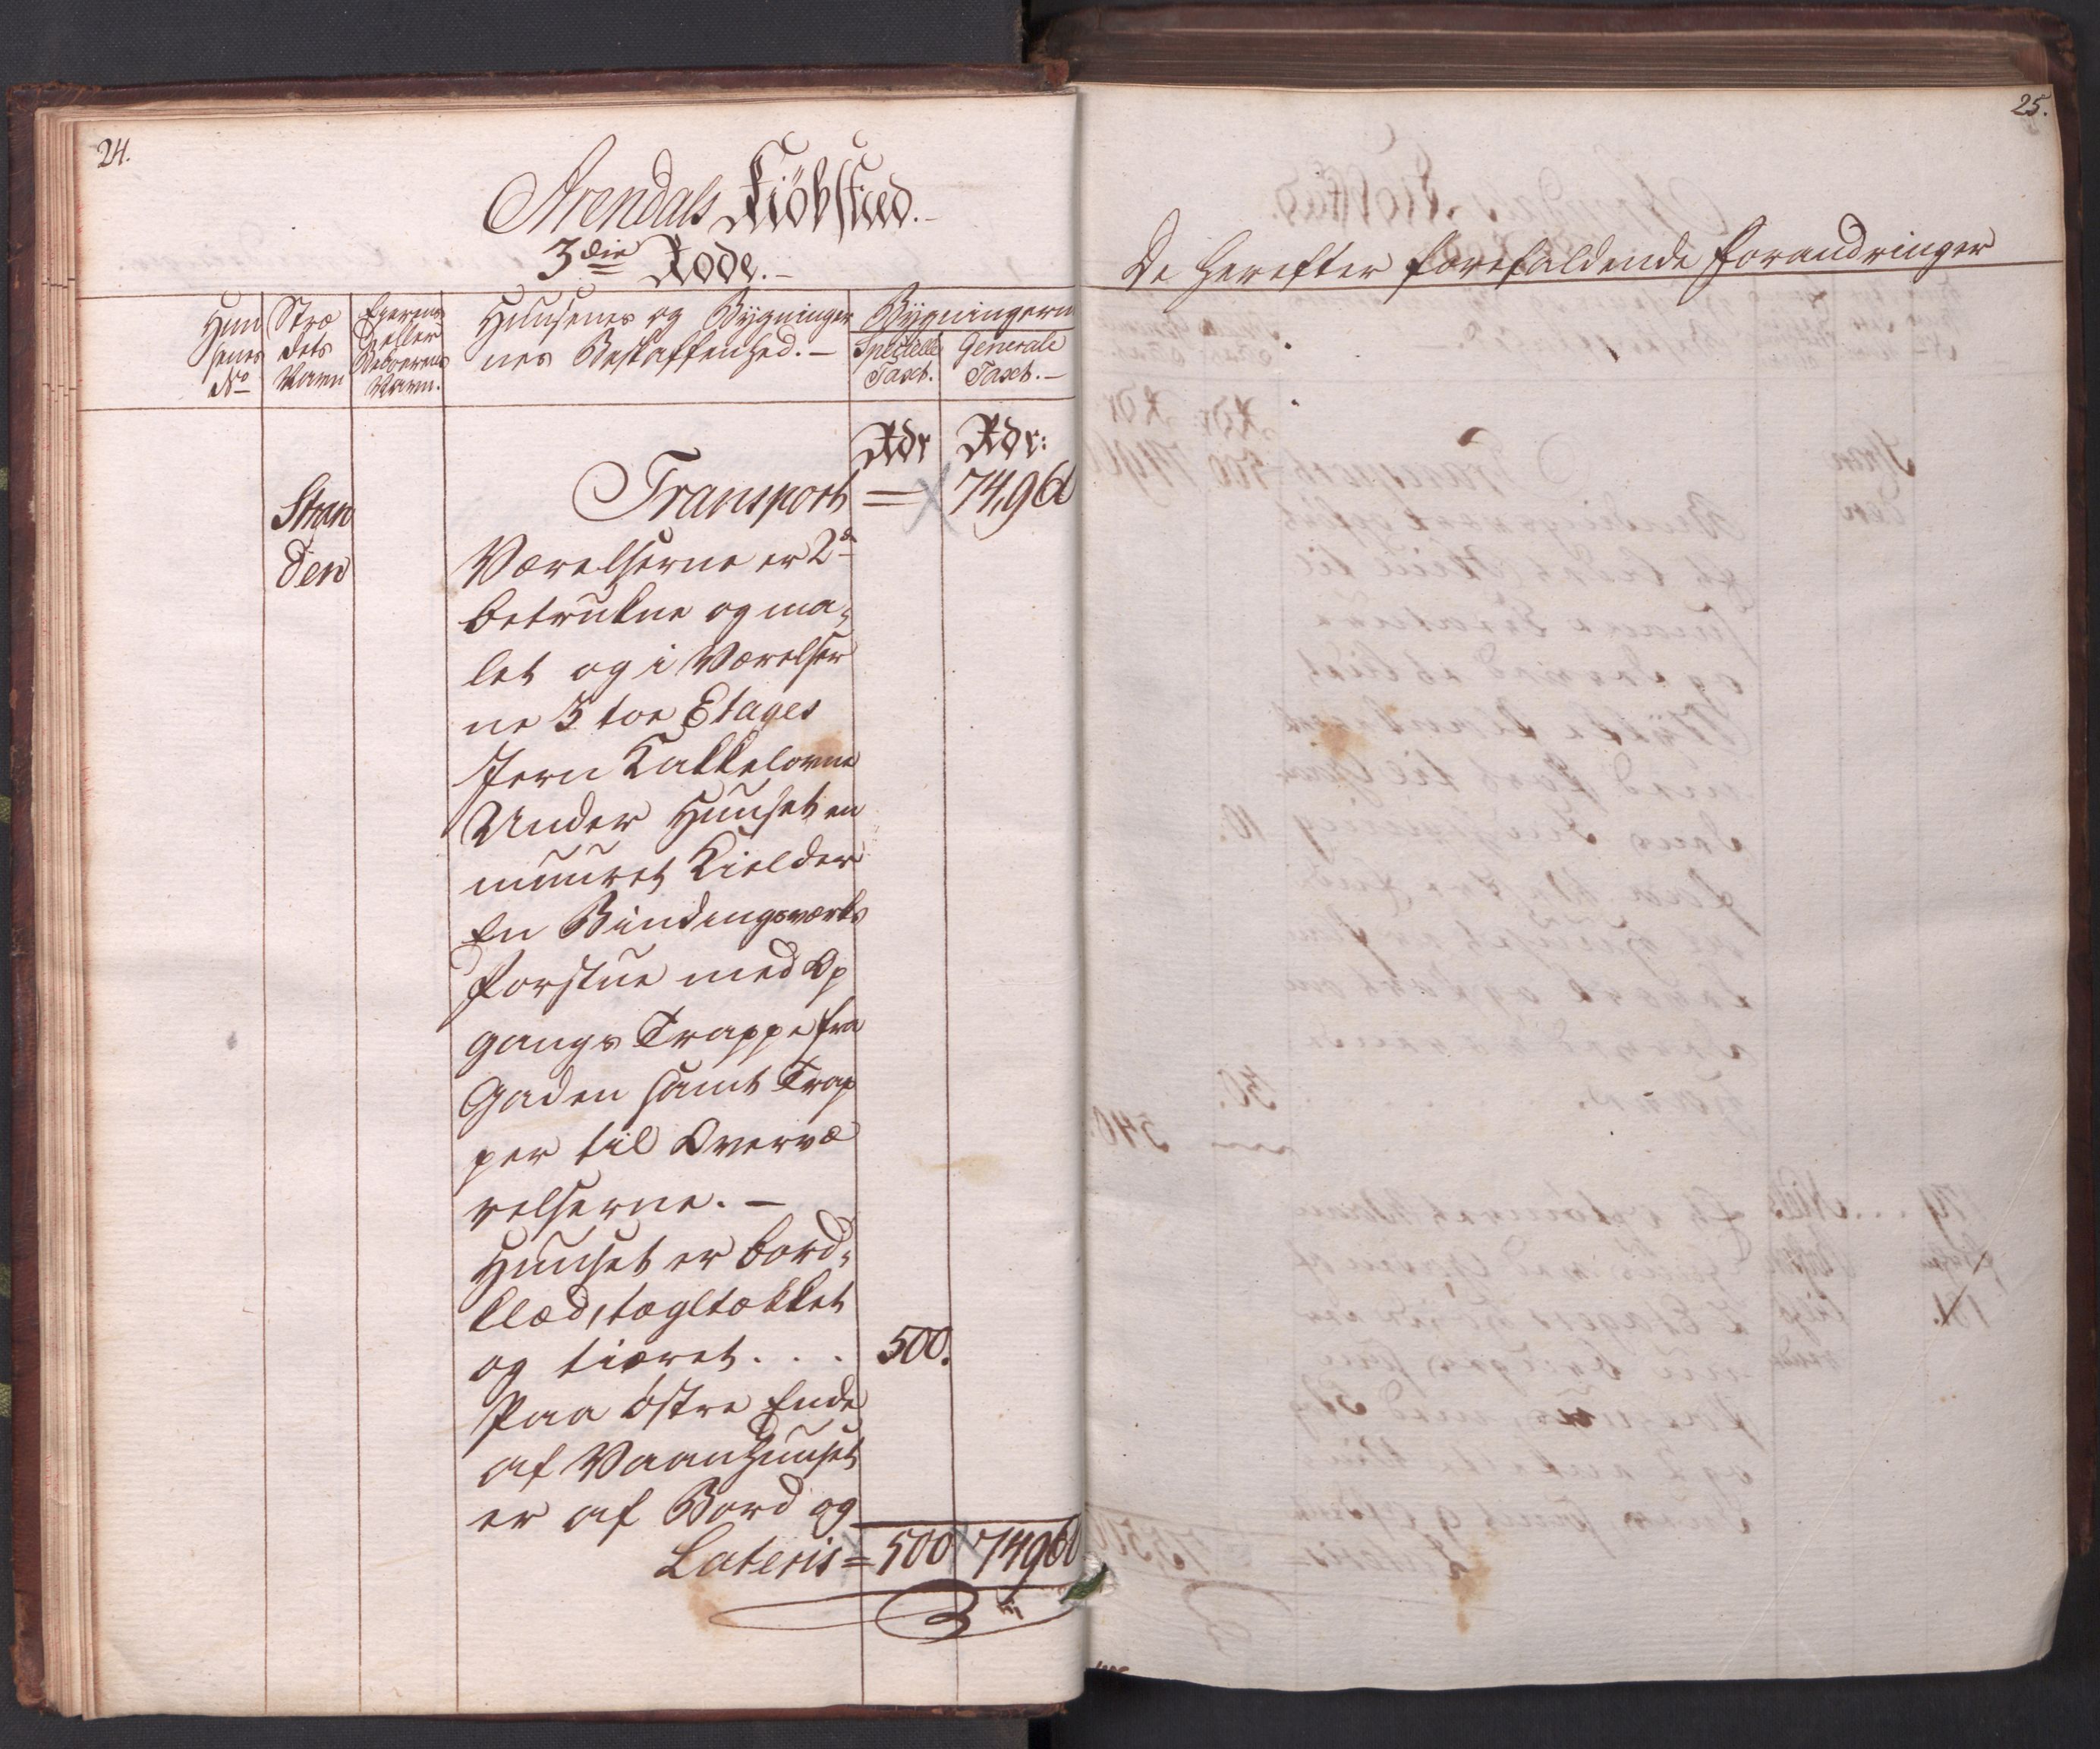 24.
Arendals Kiöbstæd.
3die Rode.
Huu
senes
No
Stræ
dets
Navn
Eyerens
eller
Beboerens
Navn.
Huusenes og Bygninger
nes Beskaffenhed.
Bygningerne
Specielle
Taxt.
Generale
Taxt.
Rdr
Rdr:
Transport = 74960
Stran
den
Værelserne er 2de
betrukne og ma-
let og i Værelser
ne 3 toe Etages
Jern Kakkelovne
Under Huuset en
muuret Kielder
En Bindingsværks
Forstue med Op
gangs Trappe fra
Gaden samt Trap
per til Overvæ
relserne.
Huuset er bord-
klæd, tegltækket
og tiæret . . . 500.
Paa østre Ende
af Vaanhuuset
er af Bord og
Lateris = 500 74960
25.
De herefter forefaldende forandringer